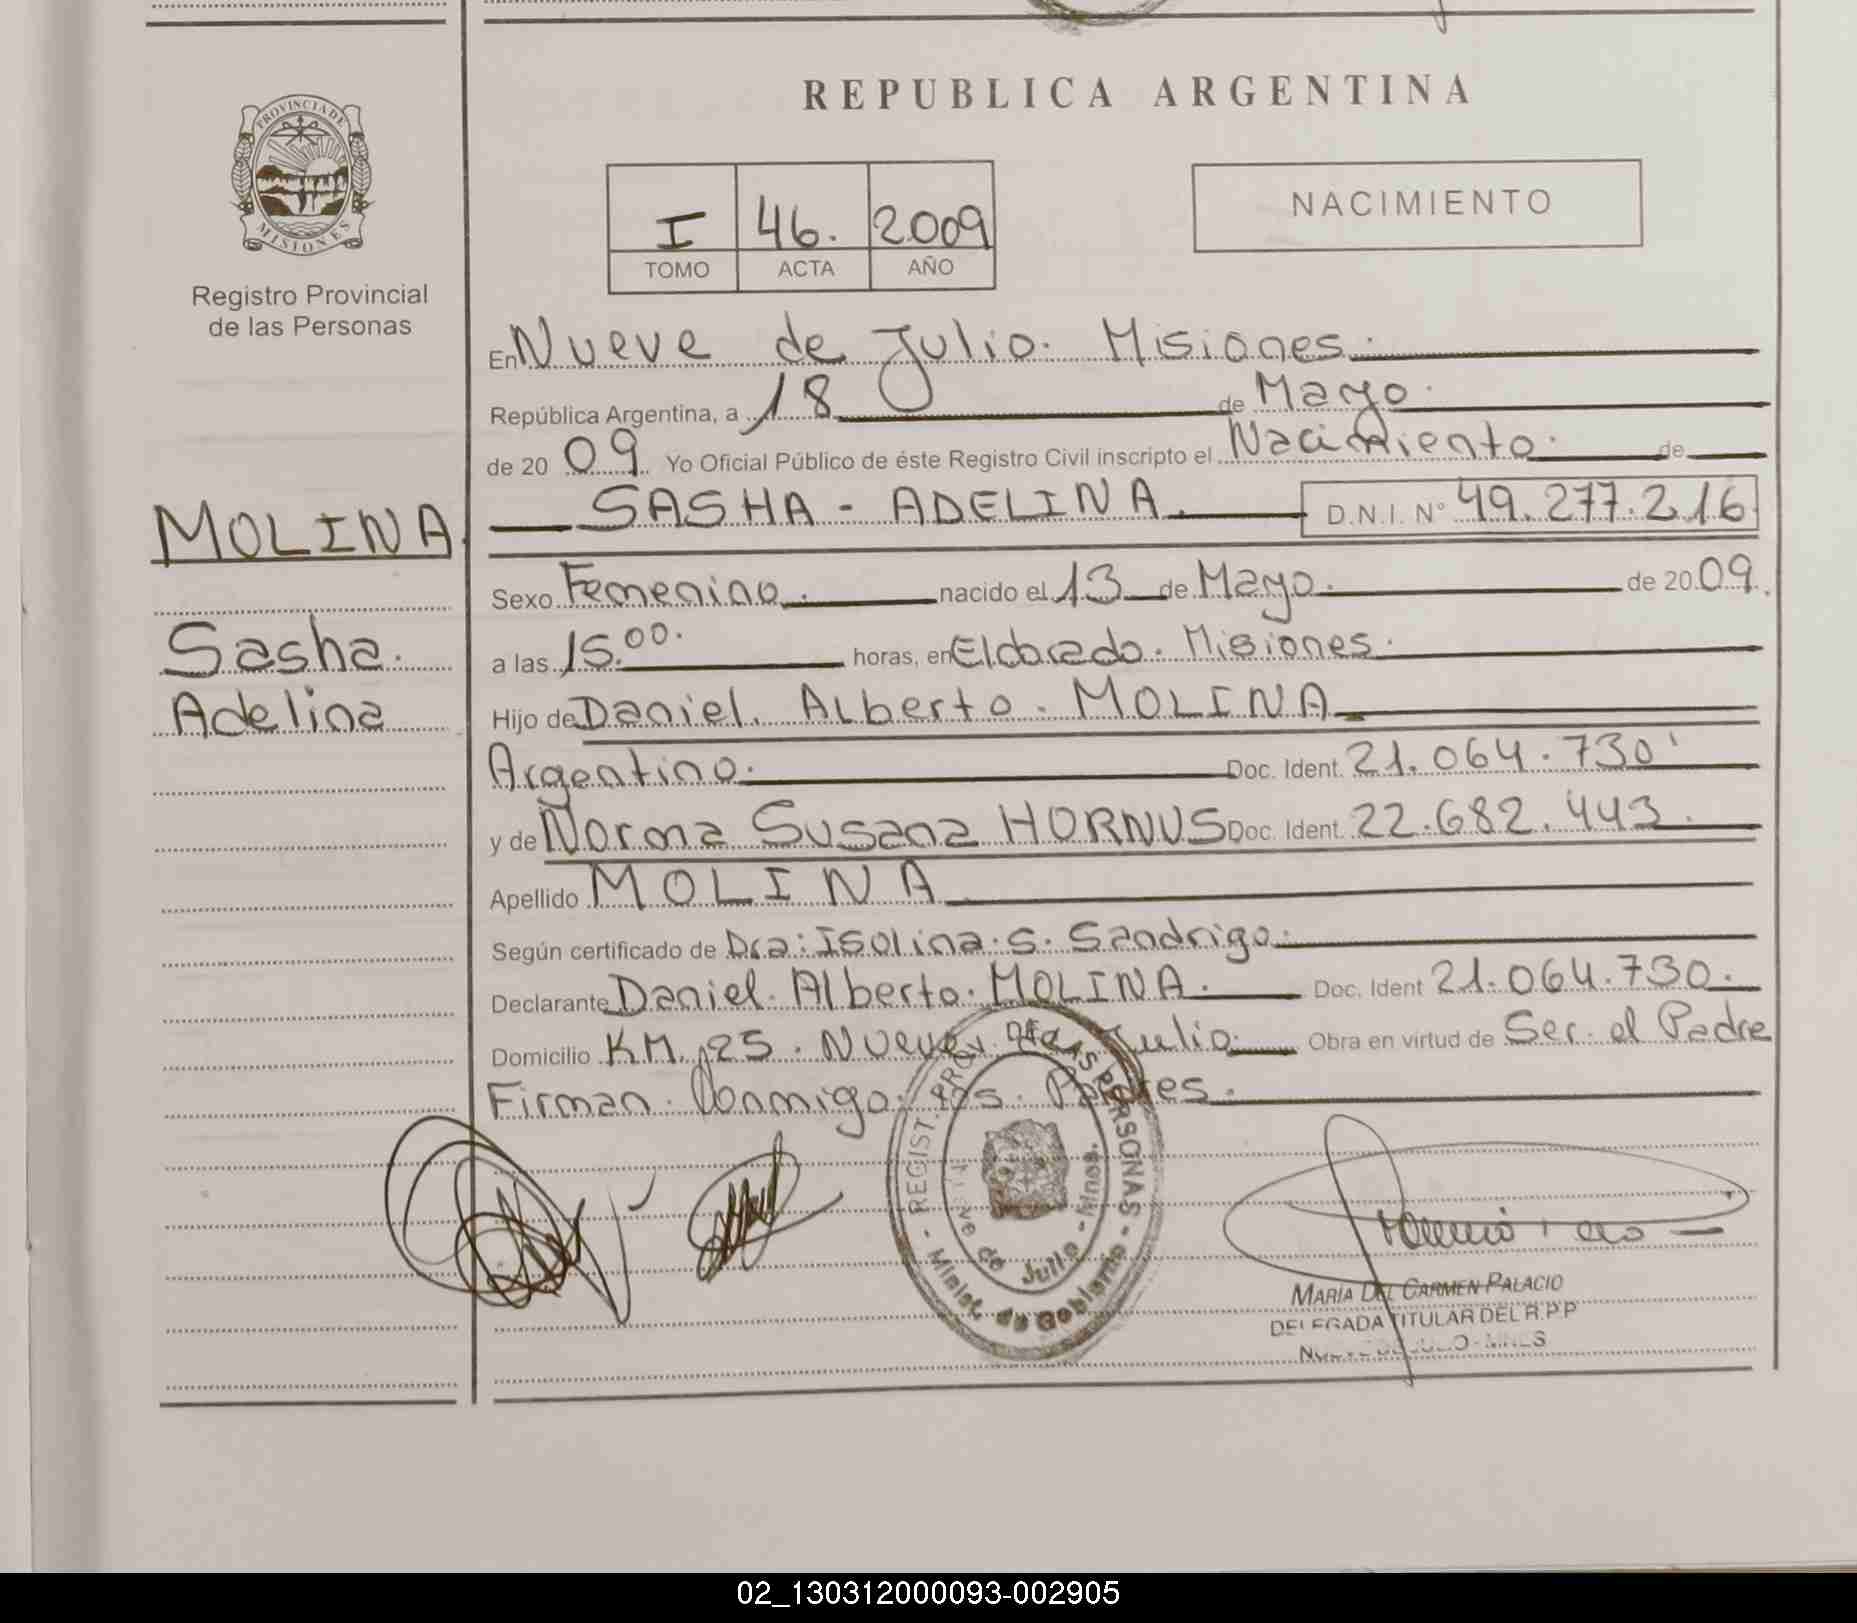 REPUBLICA ARGENTINA
PROVINCIA DE
MISIONES
Registro Provincial
de las Personas
I 46. 2009
TOMO ACTA AÑO
NACIMIENTO
En Nueve de Julio. Misiones.
República Argentina, a 18 de Mayo.
de 20 09 Yo Oficial Público de éste Registro Civil inscripto el Nacimiento. de
MOLINA.
SASHA - ADELINA. D.N.I. Nº 49.277.216
Sexo Femenino. nacido el 13 de Mayo. de 20 09.
Sasha.
Adelina
a las 15.00. horas, en Eldorado. Misiones.
Hijo de Daniel. Alberto. MOLINA
Argentino. Doc. Ident. 21.064.730
y de Norma Susana HORNUS Doc. Ident. 22.682.443.
Apellido MOLINA
Según certificado de Dra: Isolina. S. Sandrigo.
Declarante Daniel. Alberto. MOLINA. Doc. Ident 21.064.730.
Domicilio KM. 25. Nueve de Julio. Obra en virtud de Ser. el Padre
Firman. Conmigo. los. Padres.
REGIST. PROV. DE LAS PERSONAS
Nueve de Julio - Mnes.
- Minist. de Gobierno -
MARÍA DEL CARMEN PALACIO
DELEGADA TITULAR DEL R.P.P
NUEVE DE JULIO - MNES
02_130312000093-002905